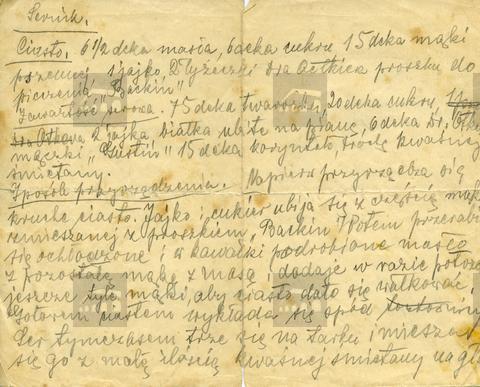 Sernik.
Ciasto. 6 1/2 deka masła, 6 deka cukru 15 deka mąki
pszennej, 1 jajko, 2 łyżeczki Dra Oetkera proszku do
pieczenia „Backin"
Zawartość sera. 75 deka twarożku, 20 deka cukru,
2 jajka białka ubite na pianę, 6 deka Dr.
mączki „Gustin" 15 deka korynek, trochę kwaśnej
śmietany.
Sposób przyrządzenia. Najpierw przyrządza się
kruche ciasto. Jajko i cukier ubija się z częścią mąki
zmieszanej z proszkiem Backin. Potem
się ochłodzone i w kawałki podrobione masło
z pozostałą mąką z masą i dodaje w razie
jeszcze tyle mąki, aby ciasto dało się wałkować.
Gotowem ciastem wykłada się spód
Ser tymczasem trze się na tarku i miesza
się go z małą ilością kwaśnej śmietany na